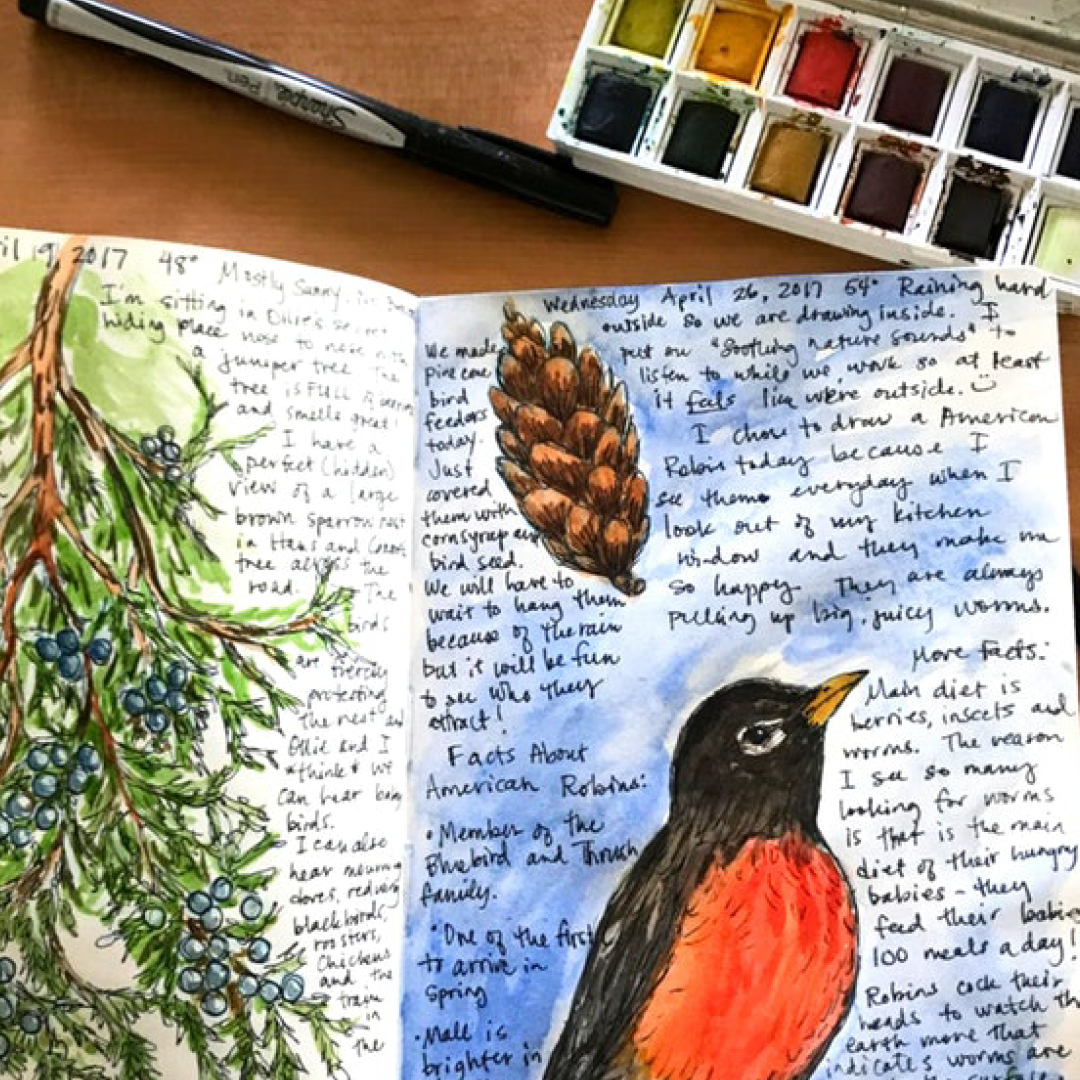 Sharpie Pen
ril 19, 2017 48° Mostly Sunny
I'm sitting in Ollie's secret
hiding place nose to nose with
a juniper tree. The
tree is FULL of
and smells great!
I have a
perfect (hidden)
view of a large
brown sparrow nest
in Hans and
tree across the
road. The
birds
are fiercely
protecting
the nest and
Ollie and I
*think* we
can hear baby
birds.
I can also
hear mourning
doves, redwing
blackbirds,
roosters,
Chickens
and the
train
in
the
Wednesday April 26, 2017 54° Raining hard
outside so we are drawing inside. I
put on "Soothing nature sounds" to
listen to while we work so at least
it feels like we're outside.
I chose to draw a American
Robin today because I
see them everyday when I
look out of my kitchen
window and they make me
so happy. They are always
pulling up big, juicy worms.
We made
pine cone
bird
feedors
today.
Just
covered
them with
cornsyrup and
bird seed.
We will have to
wait to hang them
because of the rain
but it will be fun
to see who they
attract!
Facts About
American Robins:
• Member of the
Bluebird and Thrush
family.
• One of the first
to arrive in
Spring
• Male is
brighter in
More Facts:
Main diet is
berries, insects and
worms. The reason
I see so many
looking for worms
is that is the main
diet of their hungry
babies - they
feed their babies
100 meals a day!
Robins cock their
heads to watch th
earth more that
indicates worms are